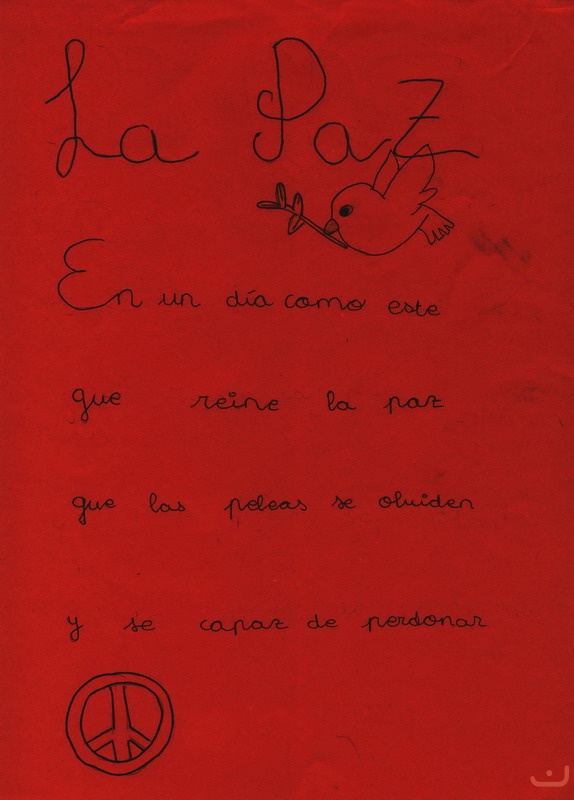 La Paz
En un día como este
que reine la paz
que las peleas se olviden
y se capaz de perdonar